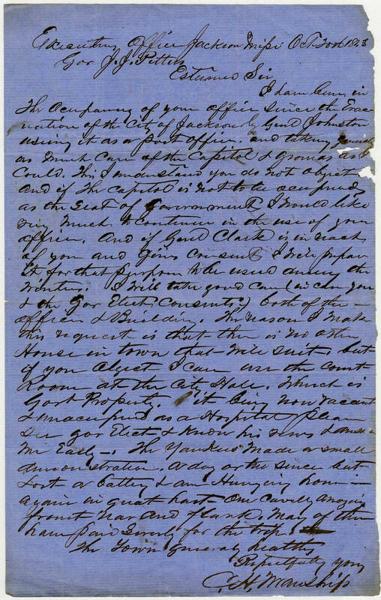 Executive Office Jackson Miss Oct 30th 1863
Gov J. J. Pettus
Esteemed Sir
I have been in
the Ocupancy of your office since the Evac
uation of the City of Jackson by Genl Johnston
using it as a post office. and taking
as much Care of the Capitol & Grounds as I
Could. this I understand you do not object
and if the Capitol is not to be ocupied
as the Seat of Government I would like
very much to Continue in the use of your
office. And if Genl Clark is in reach
of you and Gives Consent I will prepare
it for that purpose to be used during the
winter. I will take good Care (in case you
& the Gov Elect Consents) both of the
office & Building. The reason I make
this request is that there is no other
House in town that will suit, but
if you object I can use the Court
Room at the City Hall. Which is
Govt Property, it being now vacant
& unocupied as a Hospital. please
see Gov Elect & Know his views &
me Early. The Yankees made a small
demonstration. a day or two since but
Lost a battery & are
again in great haste Our Cavelry
front rear and flank. May of them
have paid Severely for the trip
The Town Generaly healthy
Respectfully yours
C. H. Manship